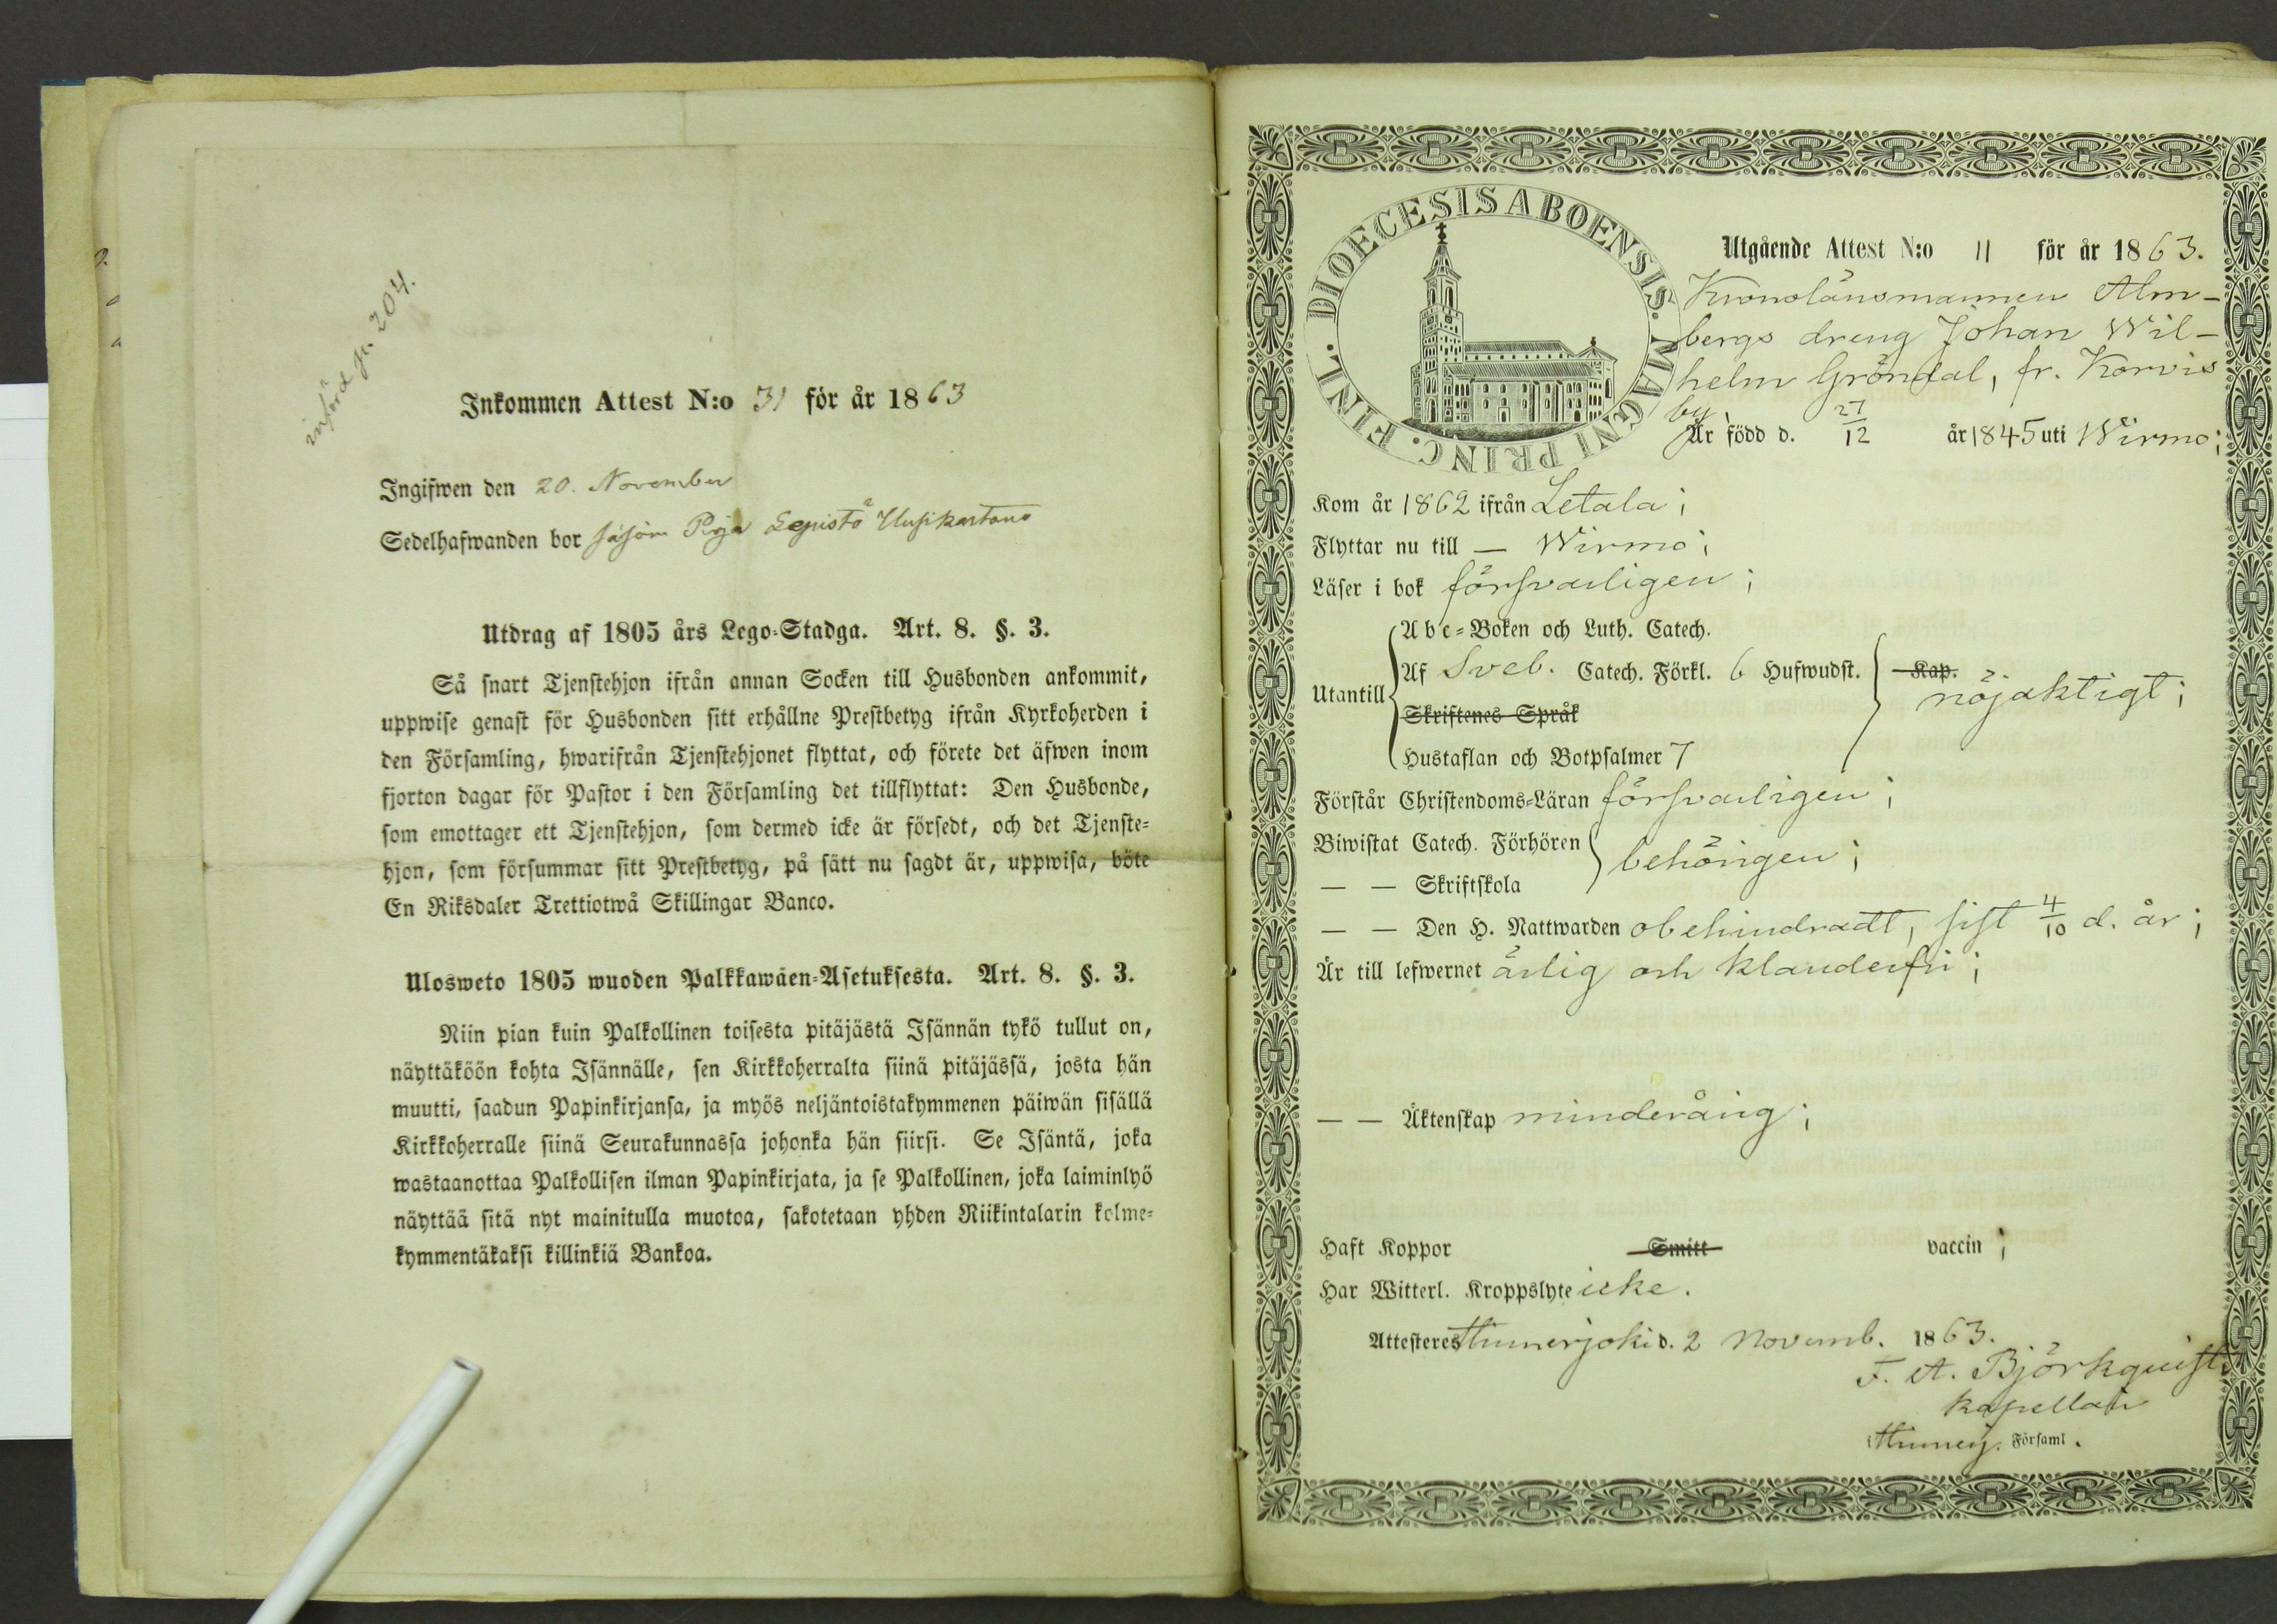 införd p. 204.
Inkommen Attest N:o 31 för år 1863
Ingifwen den 20. November
Sedelhafwanden bor såsom Piga Lepistö Uusikartano
Utdrag af 1805 års Lego-Stadga. Art. 8. §. 3.
Så snart Tjenstehjon ifrån annan Socken till Husbonden ankommit,
uppwise genast för Husbonden sitt erhållne Prestbetyg ifrån Kyrkoherden i
den Församling, hwarifrån Tjenstehjonet flyttat, och förete det äfwen inom
fjorton dagar för Pastor i den Församling det tillflyttat: Den Husbonde,
som emottager ett Tjenstehjon, som dermed icke är försedt, och det Tjenste-
hjon, som försummar sitt Prestbetyg, på sätt nu sagdt är, uppwisa, böte
En Riksdaler Trettiotwå Skillingar Banco.
Ulosweto 1805 wuoden Palkkawäen-Asetuksesta. Art. 8. §. 3.
Niin pian kuin Palkollinen toisesta pitäjästä Isännän tykö tullut on,
näyttäköön kohta Isännälle, sen Kirkkoherralta siinä pitäjässä, josta hän
muutti, saadun Papinkirjansa, ja myös neljäntoistakymmenen päiwän sisällä
Kirkkoherralle siinä Seurakunnassa johonka hän siirsi. Se Isäntä, joka
wastaanottaa Palkollisen ilman Papinkirjata, ja se Palkollinen, joka laiminlyö
näyttää sitä nyt mainitulla muotoa, sakotetaan yhden Riikintalarin kolme-
kymmentäkaksi killinkiä Bankoa.
DIOECESIS ABOENSIS. MAGNI PRINC. FINL.
Utgående Attest N:o 11 för år 1863.
Kronolänsmannen Alm-
bergs dreng Johan Wil-
helm Gröndal, fr. Korvis
by
Är född d. 27/12 år 1845 uti Wirmo;
Kom år 1862 ifrån Letala;
Flyttar nu till — Wirmo;
Läser i bok försvarligen;
Abc-Boken och Luth. Catech.
Utantill Af Sveb. Catech. Förkl. 6 Hufwudst. Kap.
nöjaktigt;
Skriftenes Språk
Hustaflan och Botpsalmer 7
Förstår Christendoms-Läran försvarligen;
Biwistat Catech. Förhören behörigen;
— — Skriftskola
— — Den H. Nattwarden obehindradt, sist 4/10 d. år;
Är till lefwernet ärlig och klanderfri;
— — Äktenskap minderårig;
Haft Koppor Smitt vaccin;
Har Witterl. Kroppslyte icke.
Attesteres Hinnerjoki d. 2 Novemb. 1863.
F. A. Björkquist
kapellan
i Hinnerj. Församl.